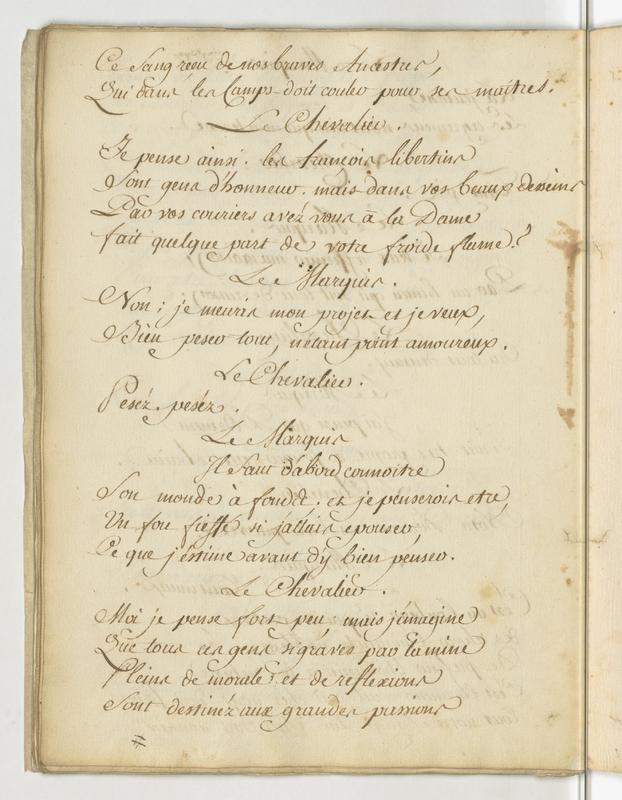 Ce Sang reçu de nos braves Ancestres,
Qui dans les Camps doit couler pour ses maitres.
Le Chevalier.
Je pense ainsi. les francois libertins
Sont gens d'honneur. mais dans vos beaux desseins
Par vos couriers avéz vous à la Dame
fait quelque part de votre froide flame?
Le Marquis.
Non; je meuris mon projet et je veux,
Bien peser tout, n'étant point amoureux.
Le Chevalier.
Peséz. peséz.
Le Marquis
Il faut d'abord connoitre
Son monde à fond. et je penserois etre,
Un fou fieffé si j'allais epouser,
Ce que j'éstime avant d'y bien penser.
Le Chevalier.
Moi je pense fort peu, mais j'émagine
Que tous ces gens si graves par la mine
Pleins de morale et de reflexions
Sont destinéz aux grandes passions